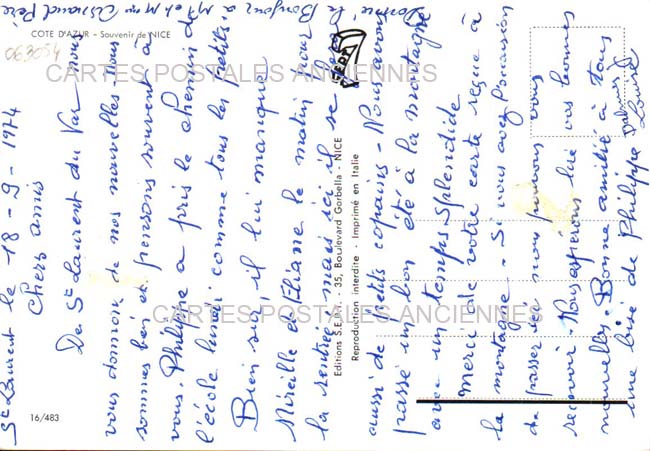 COTE D'AZUR - Souvenir de NICE
063054
CARTES POSTALES ANCIENNES
CARTES POSTALES ANCIENNES
16/483
Editions S.E.P.T. - 35, Boulevard Gorbella - NICE
Reproduction interdite - Imprimé en Italie
SEPT
St Laurent le 18-9-1974
Chers amis
De St Laurent du Var nous
vous donnons de nos nouvelles. nous
sommes bien et pensons souvent à
vous. Philippe a pris le chemin de
l'école lundi comme tous les petits,
Bien sur il lui manque
Mireille et Eliane le matin pour
la rentrée, mais ici il se fera
aussi de petits copains - Nous avons
passé un bon été à la montagne
avec un temps splendide
merci de votre carte reçue à
la montagne. Si vous avez l'occasion
de passer ici nous pouvons vous
recevoir. Nous espérons lire vos bonnes
nouvelles. Bonne amitié à tous
une bise de Philippe
Louise
Donné le Bonjour à Mr et Mme Père